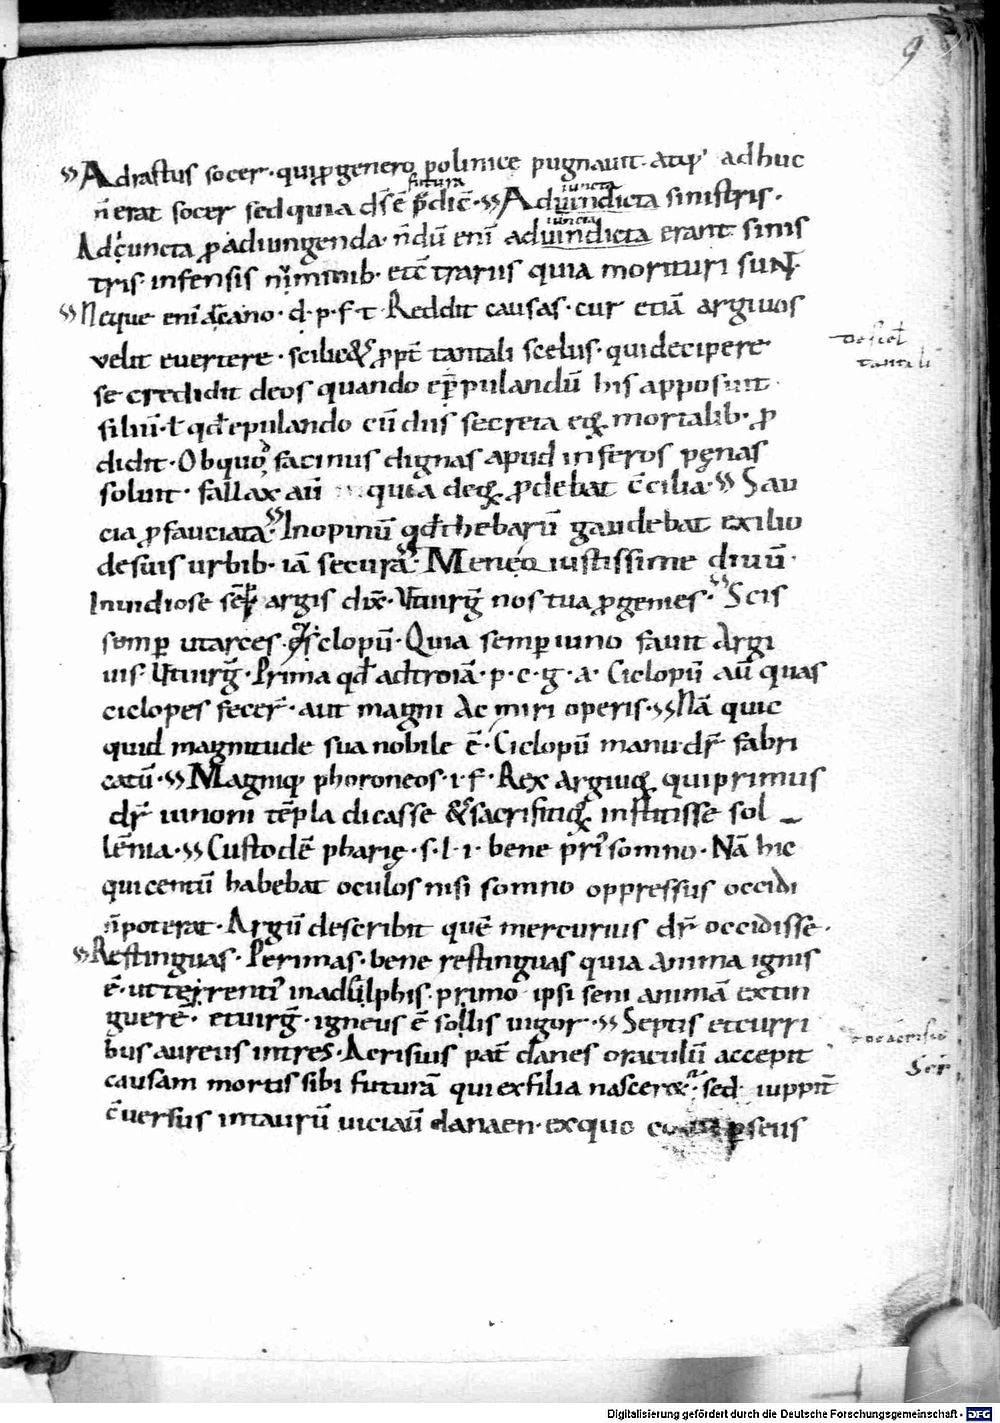 9
Adrastus socer · qui ꝓ genero polinice pugnauit · atip' adhuc
n̄ erat socer sed quia dſ̄ē futura p̄dic̄ · Aduindicta iuncta sinistris ·
Adc̄iuncta ꝓ adiungenda · n̄dū enī aduindicta iuncta erant sinis
tris · infensis nūminib · et c̄trariis quia morituri suNT ·
Neque enī arcano · d · p · f · t · Reddit causas · cur etiā argiuos
uelit euertere · scilic& ꝓpt̄ tantali scelus · qui decipere
se credidit deos quando epulandū his apposuit
filiū · ł qđ epulando cū diis secreta eoꝝ mortalib · ꝓ
didit · Ob quod facinus dignas apud inferos pęnas
soluit · fallax aū quia deoꝝ ꝓdebat c̄cilia · Sau
cia ꝓ sauciata · Inopinū qđ thebarū gaudebat exilio
de suis urbib · iā secura · Meneo iustissime diuū ·
Inuidiose argis dix̄ · Vt uirḡ nos tua ꝓgenies · Scis
semꝑ ut arces ciclopū · Quia semꝑ iuno fauit Argi
uis · Vt uirḡ · Prima qđ ad troiā · p · c · g · a · Ciclopū aū quas
ciclopes fecer̄ · aut magni Ac miri operis · Nā quic
quid magnitude sua nobile ē · Ciclopū manu dr̄ fabri
catū · Magniq phoroneos · i · f · Rex argiuoꝝ qui primus
dr̄ iunoni tēpla dicasse & sacrificioꝝ instituisse sol
lēnia · Custodē pharię · s · l · i · bene pri' somno · Nā hic
qui centū habebat oculos nisi somno oppressus occidi
n̄ poterat · Argū describit quē mercurius dr̄ occidisse ·
Restinguas · Perimas · bene restinguas quia anima ignis
ē · ut terrenti' in adelphis · primo ipsi seni animā extin
guerē · et uirḡ · igneus ē sollis uigor · Septis et curri
bus aureus intres · Acrisius pat̄ danes oraculū accepit
causam mortis sibi futurā qui ex filia nascer& · sed iuppit̄
c̄uersus in taurū uiciauī danaen · ex quo ꝑseus
de scel
tantali
de acrisio
Digitalisierung gefördert durch die Deutsche Forschungsgemeinschaft - DFG